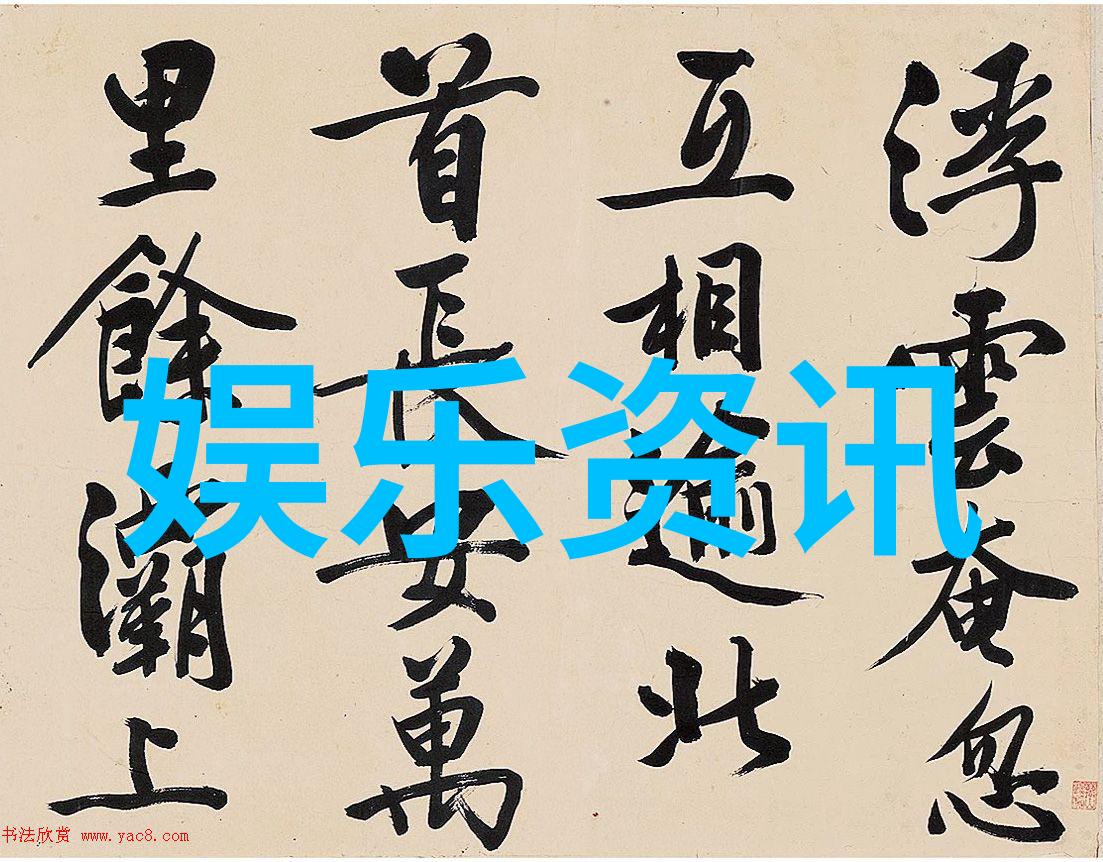 浮雲奄忽
互相逾北
首長安萬
里餘灞上
娱乐资讯
书法欣赏 www.yac8.com